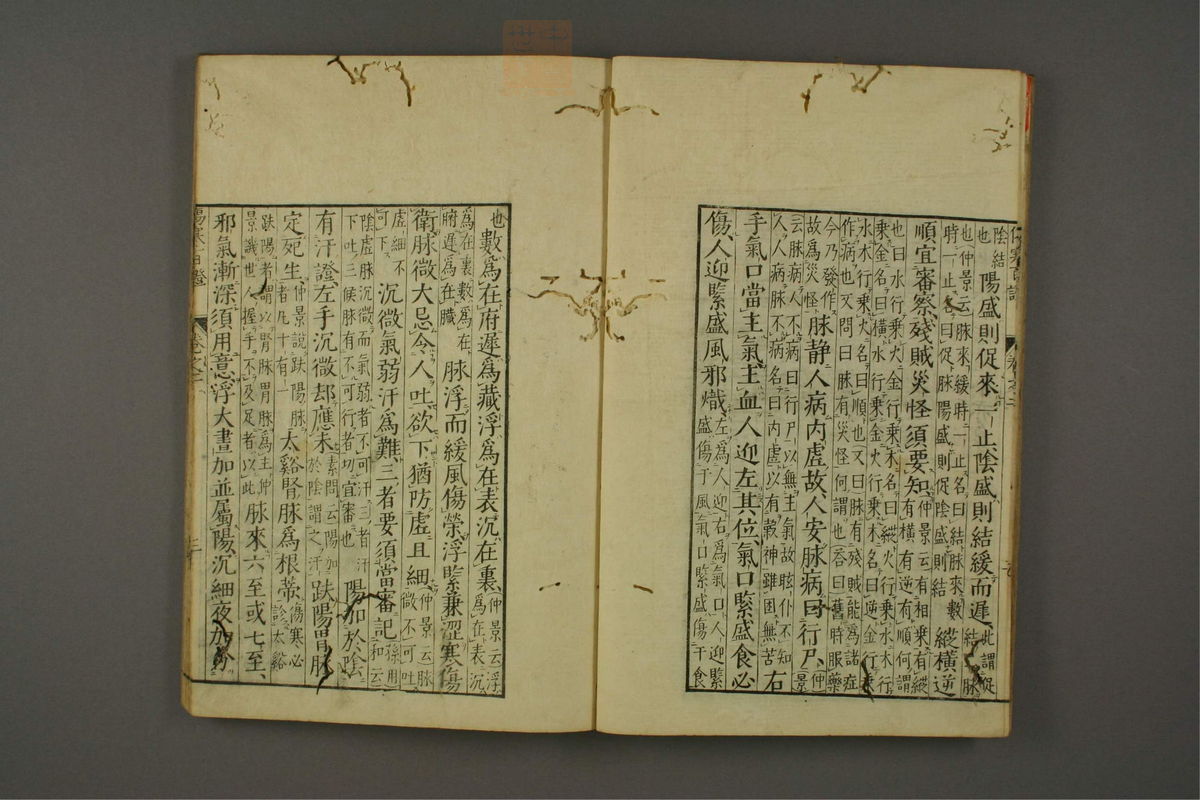 陰結
也
陽盛則促來一止陰盛則結緩而遲
此謂促
結脉
也仲景云脉來緩時一止名曰結脉來數
時一止名曰促脉陽盛則促陰盛則結
縱橫逆
順宜審察殘賊災怪須要知
仲景云有相乘有縱
有橫有逆有順何謂
也曰水行乘火金行乘木名曰縱火行乘水木行
乘金名曰橫水行乘金火行乘木名曰逆金行乘
水木行乘火名曰順也又曰脉有殘賊能為諸症
作病也又問曰脉有災怪何謂也荅曰舊時服藥
今乃發作
故為災怪
脉静人病内虛故人安脉病曰行尸
仲
景
云脉病人不病曰行尸以無主氣故眩仆不知
人人病脉不病名曰内虛以有穀神雖困無苦
右
手氣口當主氣主血人迎左其位氣口緊盛食必
傷人迎緊盛風邪熾
左為人迎右為氣口人迎緊
盛傷于風氣口緊盛傷于食
也
數為在府遲為藏浮為在表沉在裏
仲景云浮
為在表沉
為在裏數為在
府遲為在臟
脉浮而緩風傷榮浮緊兼澀寒傷
衛脉微大忌令人吐欲下猶防虛且細
仲景云脉
微不可吐
虛細不
可下
沉微氣弱汗為難三者要須當審記
孫用
和云
陰虛脉沉微而氣弱者不可汗三者汗
下吐三候脉有不可行者切宜審也
陽加於陰
有汗證左手沉微却應未
素問云陽加
於陰謂之汗
趺陽胃脉
定死生
仲景說趺陽脉
者凡十有一
太谿腎脉為根蒂
傷寒必
診太谿
趺陽者謂以腎脉胃脉為主仲
景譏世人握手不及足者以此
脉來六至或七至
邪氣漸深須用意浮大晝加並屬陽沉細夜加分